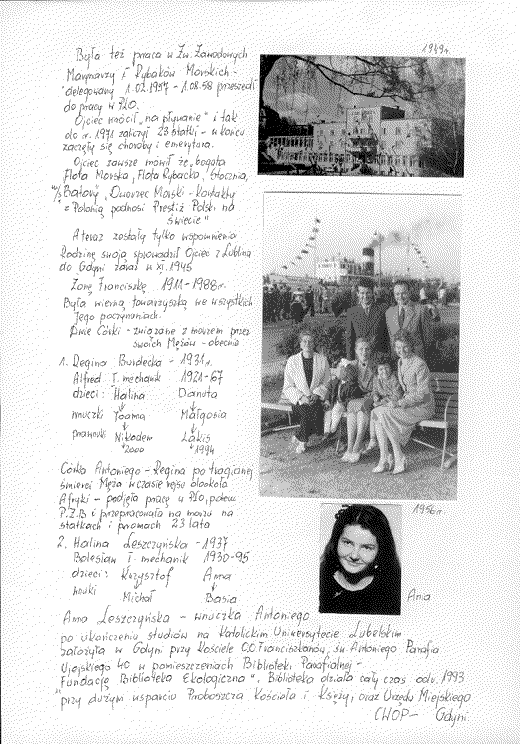 Była też praca w Zw. Zawodowych
Marynarzy i Rybaków Morskich -
delegowany 1.02.1957 - 1.08.58 przeszedł
do pracy w PLO.
Ojciec wrócił „na pływanie" i tak
do r. 1971 zaliczył 23 statki - w końcu
zaczęły się choroby i emerytura.
Ojciec zawsze mówił że „bogata
Flota Morska, Flota Rybacka, Stocznia,
Batory", Dworzec Morski - Kontakty
z Polonią podnosi Prestiż Polski na
świecie"
A teraz zostały tylko wspomnienia
Rodzinę swoją sprowadził Ojciec z Lublina
do Gdyni zaraz w XI. 1945
Żonę Franciszkę 1911-1988r.
Była wierną towarzyszką we wszystkich
Jego poczynaniach.
Dwie Córki - związane z morzem przez
swoich Mężów - obecnie
1. Regina Burdecka - 1931r.
Alfred I. mechanik 1921-67
dzieci: Halina Danuta
wnuczki Joanna Małgosia
prawnuki Nikodem Lakis
2000 1994
Córka Antoniego - Regina po tragicznej
śmierci Męża w czasie rejsu dookoła
Afryki - podjęła pracę w PLO, potem
P.Ż.B i przepracowała na morzu na
statkach i promach 23 lata
2. Halina Leszczyńska - 1937
Bolesław I. mechanik 1930-95
dzieci: Krzysztof Anna
wnuki Michał Basia
Anna Leszczyńska - wnuczka Antoniego
po ukończeniu studiów na Katolickim Uniwersytecie Lubelskim
założyła w Gdyni przy Kościele O.O. Franciszkanów, św. Antoniego Parafia
Ujejskiego 40 w pomieszczeniach Biblioteki Parafialnej -
Fundację „Biblioteka Ekologiczna". Biblioteka działa cały czas od r. 1993
przy dużym wsparciu Proboszcza Kościoła i Księży, oraz Urzędu Miejskiego
CWOP - Gdyni.
1949r.
1956r.
Ania